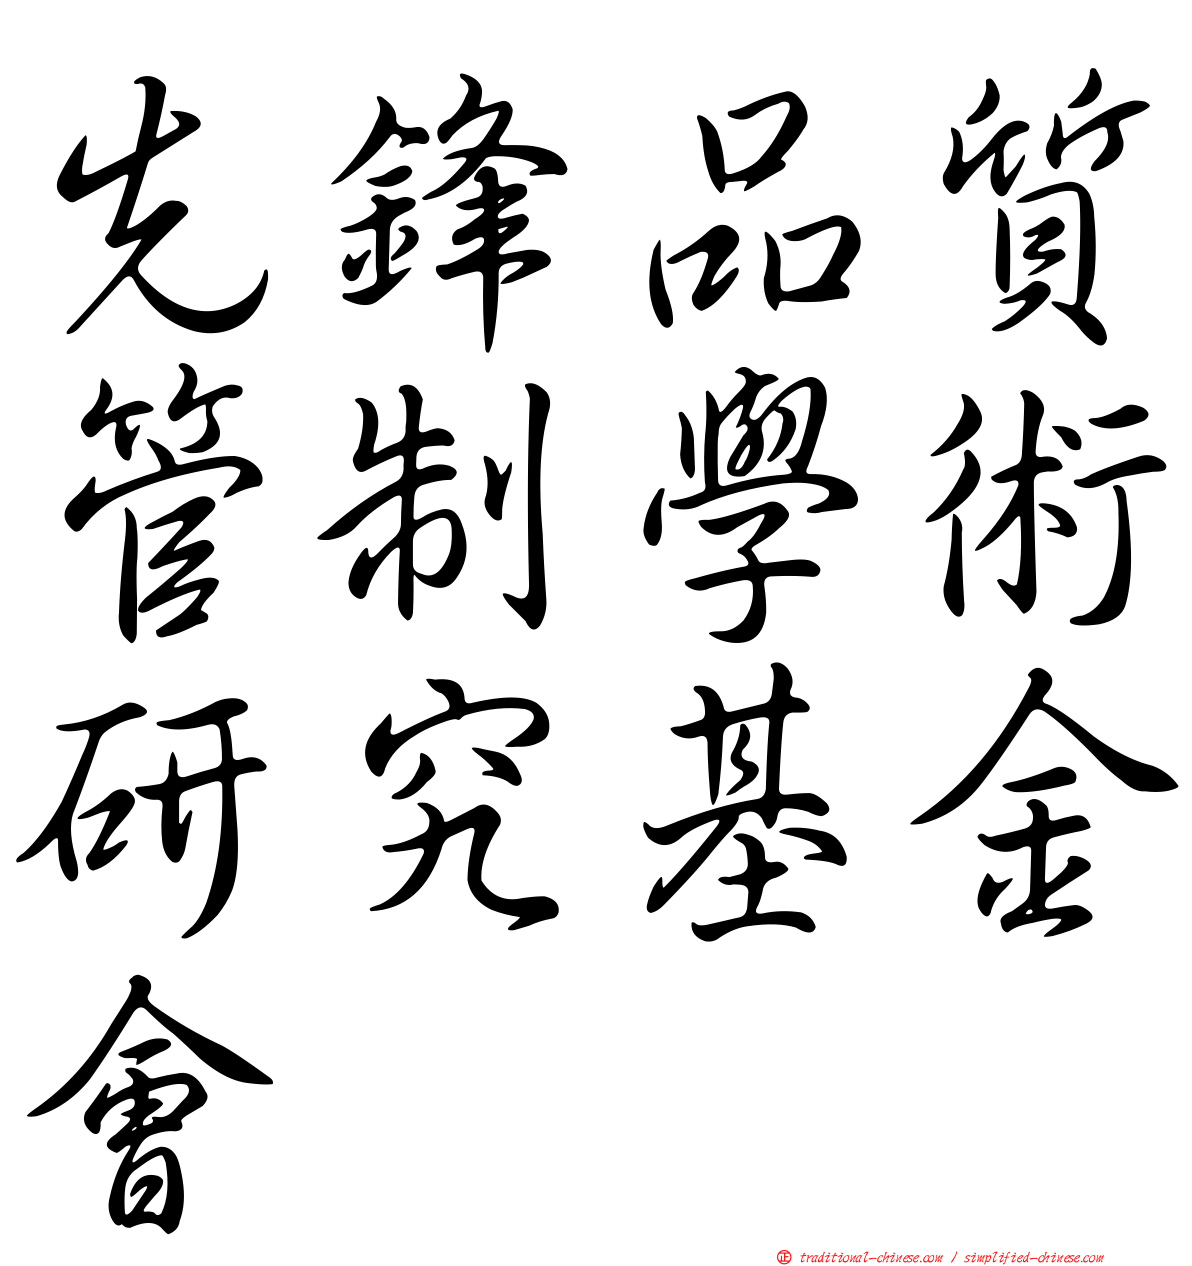 先鋒品質
管制學術
研究基金
會
正 traditional-chinese.com / simplified-chinese.com